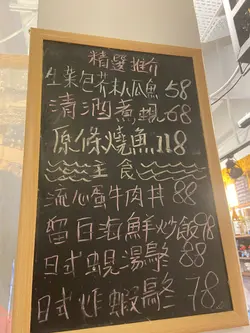 精選推介
生菜包芥末八爪魚 58
清酒煮蜆 68
原條燒魚 118
主食
流心蛋牛肉丼 88
留日海鮮炒飯 98
日式蜆湯烏冬 88
日式炸蝦烏冬 78